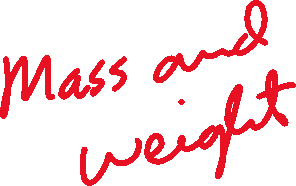 Mass and
weight